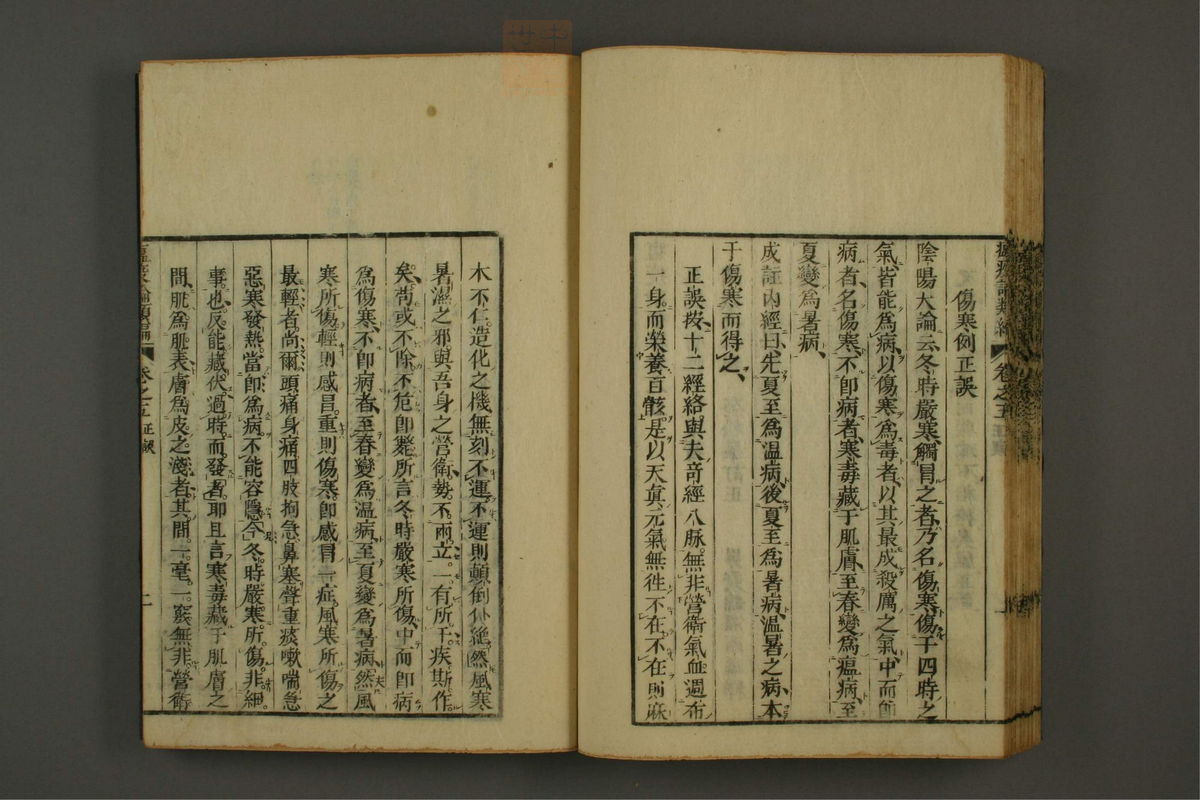 瘟疫論類編 卷之五 正誤
傷寒例正誤
陰陽大論云冬時嚴寒觸冒之者乃名傷寒傷于四時之
氣皆能爲病以傷寒爲毒者以其最成殺厲之氣中而卽
病者名傷寒不卽病者寒毒藏于肌膚至春變爲瘟病至
夏變爲暑病
成註內經曰先夏至爲温病後夏至爲暑病温暑之病本
于傷寒而得之
正誤按十二經絡與夫奇經八脉無非營衛氣血週布
一身而榮養百骸是以天眞元氣無徃不在不在則麻
木不仁造化之機無刻不運不運則顛倒仆絶然風寒
暑濕之邪與吾身之營衛勢不兩立一有所干疾斯作
矣苟或不除不危卽斃所言冬時嚴寒所傷中而卽病
爲傷寒不卽病者至春變爲温病至夏變爲暑病然風
寒所傷輕則感冒重則傷寒卽感冒一症風寒所傷之
最輕者尚爾頭痛身痛四肢拘急鼻塞聲重痰嗽喘急
惡寒發熱當卽爲病不能容隱今冬時嚴寒所傷非細
事也反能藏伏過時而發者耶且言寒毒藏于肌膚之
間肌爲肌表膚爲皮之淺者其間一毫一竅無非營衛
瘟疫論類編 卷之五 正誤 二